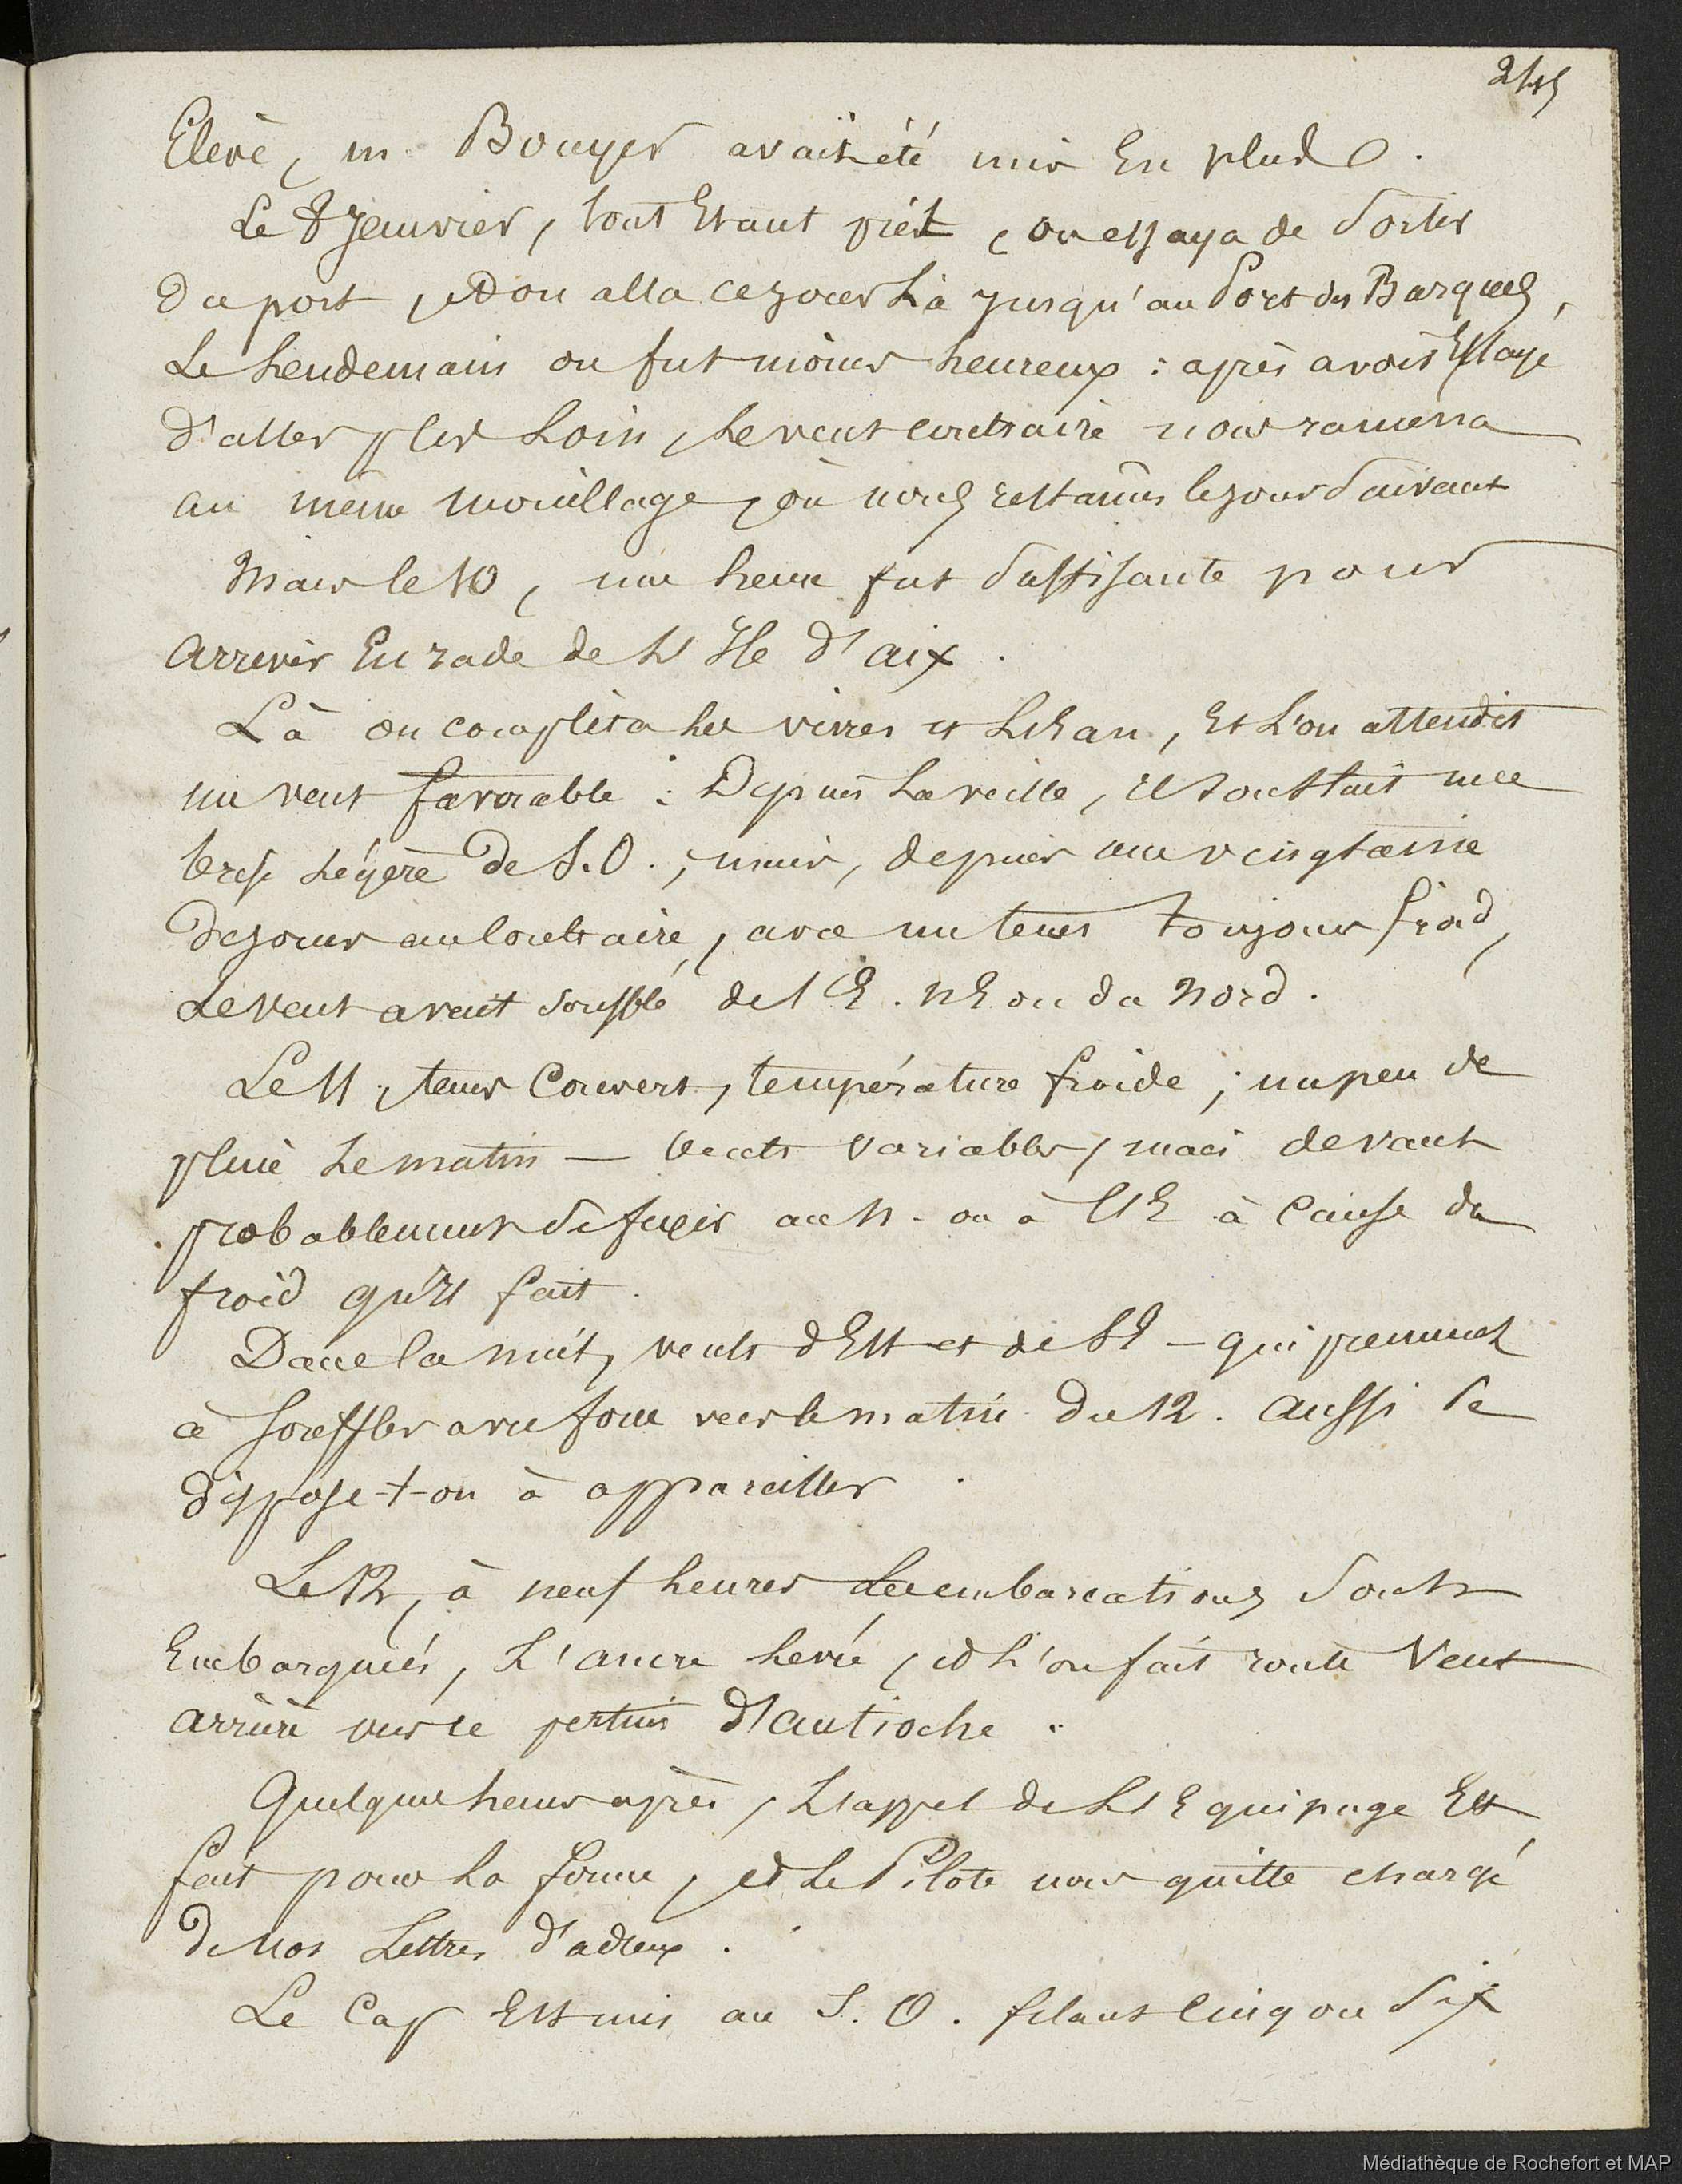 245
Elevè, m. Bouyer avait été mis En plus.
Le 8 Janvier, tout Etant prét, on essaya de Sortir
Du port, et on alla ce jour Là jusqu'au Port des Barques,
Le Lendemain on fut moins heureux : après avoir Essayé
D'aller plus Loin, Le vent contraire nous ramena
au même mouillage, où nous restames le jour Suivant
Mais le 10, une heure fut Suffisante pour
Arriver En rade de L'Ile D'aix.
Là on complèta Les vivres et L'Eau, Et L'on attendit
un vent favorable : Depuis La veille, il soufflait une
brise Légère De S.O. ; mais, depuis une vingtaine
De jours au Contraire, avec un tems toujours froid,
Le vent avait soufflé de l'E. NE ou du Nord.
Le 11, tems Couvert, température froide ; un peu de
pluie Le matin — Vents variables, mais devant
probablement Se fixer au N. ou à l'E à Cause du
froid qu'il fait.
Dans la nuit, vents d'Est et de SE — qui prennent
à Souffler avec force vers le matin Du 12. Aussi Se
Dispose-t-on à appareiller.
Le 12, à neuf heures Les embarcations Sont
Embarquées, L'ancre levée, et L'on fait route Vent
arrière vers le pertuis D'antioche.
Quelques heures après, L'appel de L'Equipage Est
fait pour La forme, et Le Pilote nous quitte chargé
De Nos Lettres D'adieux.
Le Cap Est mis au S.O. filant Cinq ou Six
Médiathèque de Rochefort et MAP